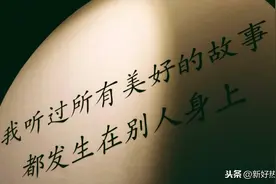 我听过所有美好的故事
都发生在别人身上
头条 @新好热